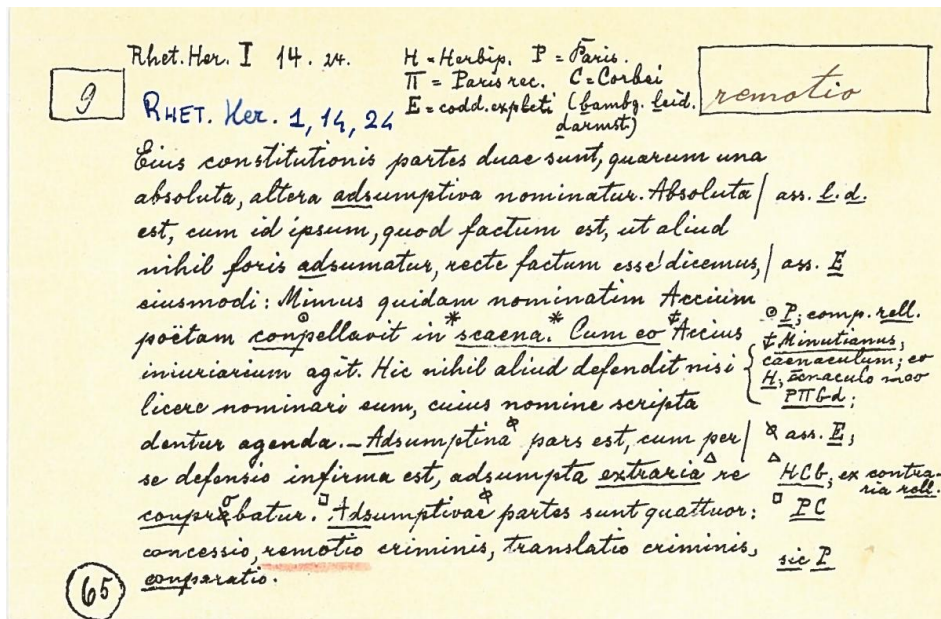 Rhet. Her. I 14. 24.
H = Herbip. P = Paris.
Π = Paris rec. C = Corbei
E = codd. expleti (bambg. leid. darmst.)
9
RHET. Her. 1, 14, 24
remotio
Eius constitutionis partes duae sunt, quarum una
absoluta, altera adsumptiva nominatur. Absoluta / ass. l. d.
est, cum id ipsum, quod factum est, ut aliud
nihil foris adsumatur, recte factum esse dicemus, / ass. E
eiusmodi: Mimus quidam nominatim Accium
poëtam conpellavit in * scaena. * Cum eo ‡ Accius
iniuriarium agit. Hic nihil aliud defendit nisi
licere nominari eum, cuius nomine scripta
dentur agenda. – Adsumptina pars est, cum per /
se defensio infirma est, adsumpta extraria △ re
conprobatur. □ Adsumptivae partes sunt quattuor:
concessio, remotio criminis, translatio criminis,
conparatio.
⊙ P; comp. rell.
‡ Minutianus;
caenaculum; eo
H; cenaculo meo
PΠbd;
ass. E;
△ HCb; ex contra-
ria rell.
□ PC
sic P
65